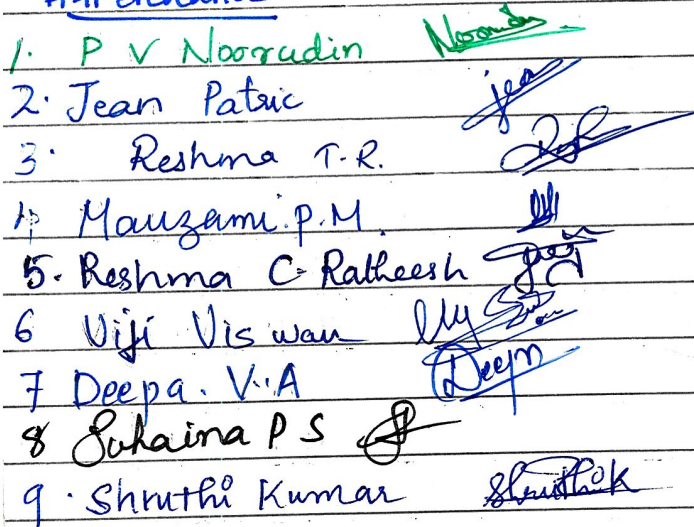 1. P V Noorudin Noorudin
2. Jean Patric jea
3. Reshma T.R.
4 Mauzami.P.M.
5. Reshma C Ratheesh
6 Viji Viswan
7 Deepa. V.A Deepa
8 Suhaina P S
9. Shruthi Kumar Shruthi K